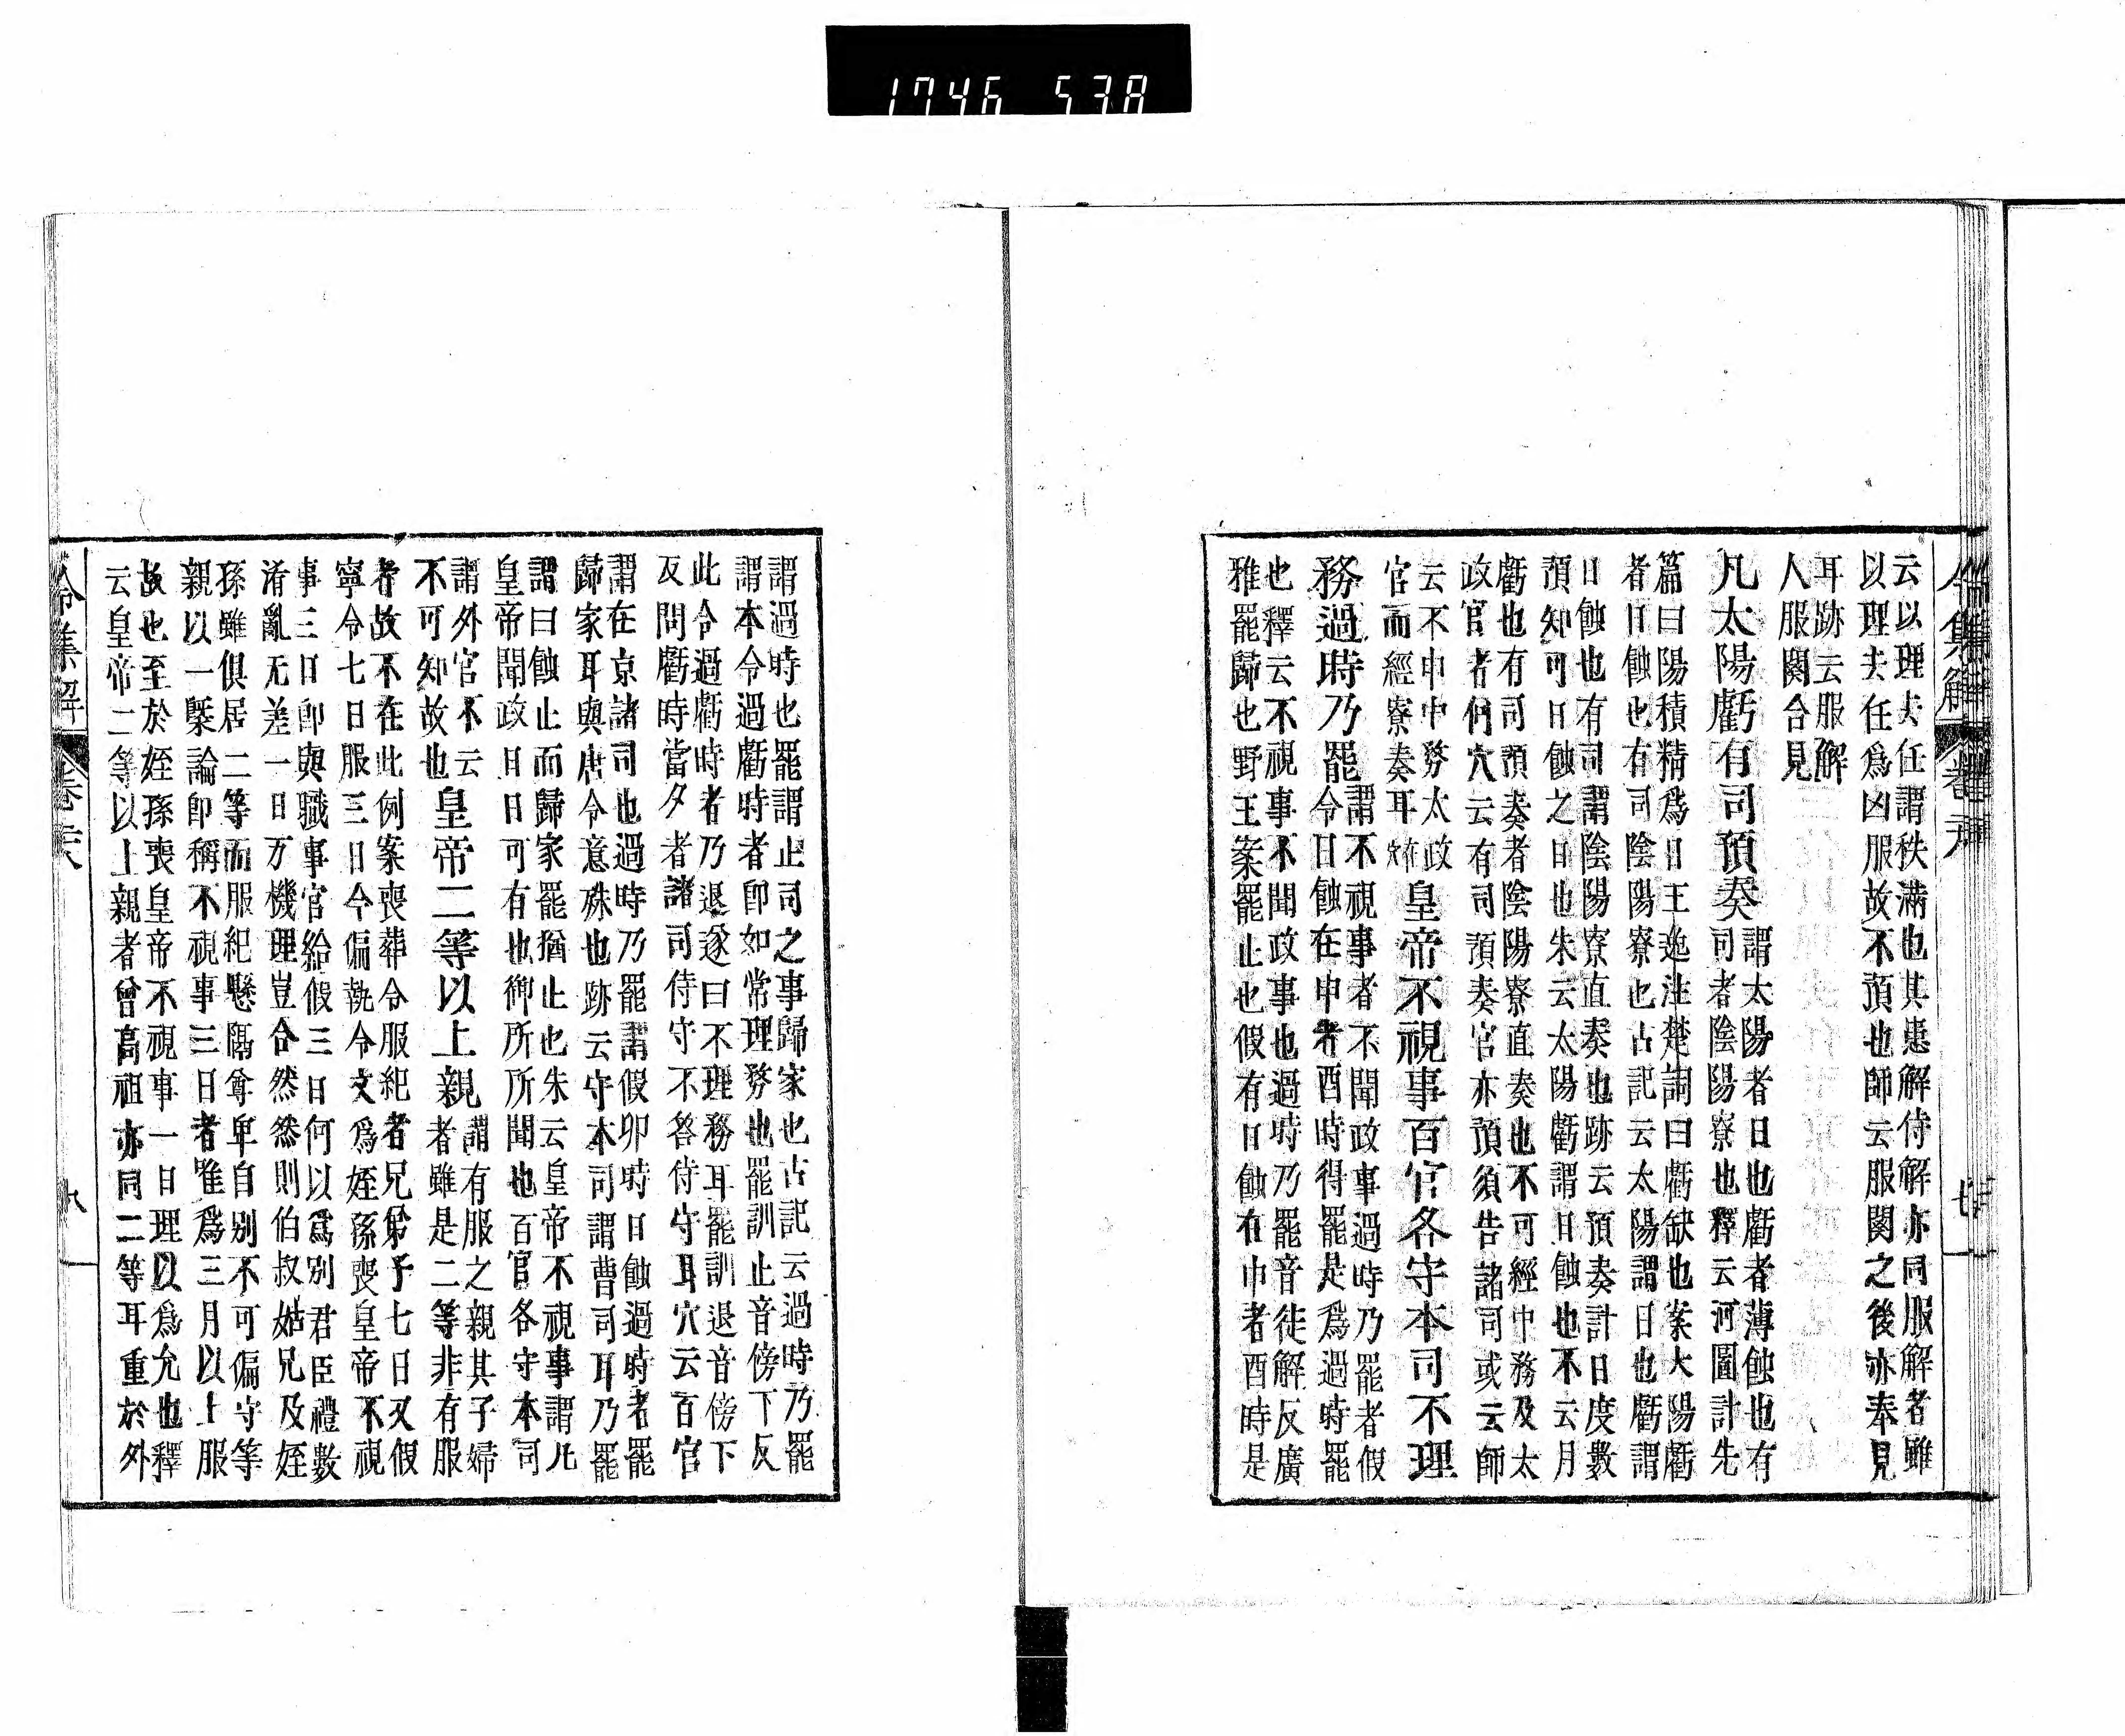 1746 538
令集解 卷
云以理夫任謂秩滿也其患解侍解亦同服解者雖
以理夫任爲凶服故不預也師云服闋之後亦奉見
耳跡云服解
人服闋合見
凡太陽虧有司預奏
謂太陽者日也虧者薄蝕也有
司者陰陽寮也釋云河圖計先
篇曰陽積精爲日王逸注楚詞曰虧缺也案大陽虧
者日蝕也有司陰陽寮也古記云太陽謂日也虧謂
日蝕也有司謂陰陽寮直奏也跡云預奏計日度數
預知可日蝕之日也朱云太陽虧謂日蝕也不云月
虧也有司預奏者陰陽寮直奏也不可經中務及太
政官者何穴云有司預奏官亦預須告諸司或云師
云不申中務太政
官而經寮奏耳
皇帝不視事百官各守本司不理
務過時乃罷
謂不視事者不聞政事過時乃罷者假
令日蝕在申者酉時得罷是爲過時罷
也釋云不視事不聞政事也過時乃罷音徒解反廣
雅罷歸也野王案罷止也假有日蝕在申者酉時是
謂過時也罷謂止司之事歸家也古記云過時乃罷
謂本令過虧時者卽如常理務也罷訓止音傍下反
此令過虧時者乃退逐曰不理務耳罷訓退音傍下
反問虧時當夕者諸司侍守不答侍守耳穴云百官
謂在京諸司也過時乃罷謂假卯時日蝕過時者罷
歸家耳與唐令意殊也跡云守本司謂曹司耳乃罷
謂曰蝕止而歸家罷猶止也朱云皇帝不視事謂凡
皇帝聞政日日可有也御所所聞也百官各守本司
謂外官不云
不可知故也
皇帝二等以上親
謂有服之親其子婦
者雖是二等非有服
者故不在此例案喪葬令服紀者兄弟子七日又假
寧令七日服三日今偏執令文爲姪孫喪皇帝不視
事三日卽與職事官給假三日何以爲別君臣禮數
淆亂无差一日万機理豈合然然則伯叔姑兄及姪
孫雖俱居二等而服紀懸隔尊卑自別不可偏守等
親以一槩論卽稱不視事三日者唯爲三月以上服
故也至於姪孫喪皇帝不視事一日理以爲允也釋
云皇帝二等以上親者曾高祖亦同二等耳重於外
令集解 卷 八